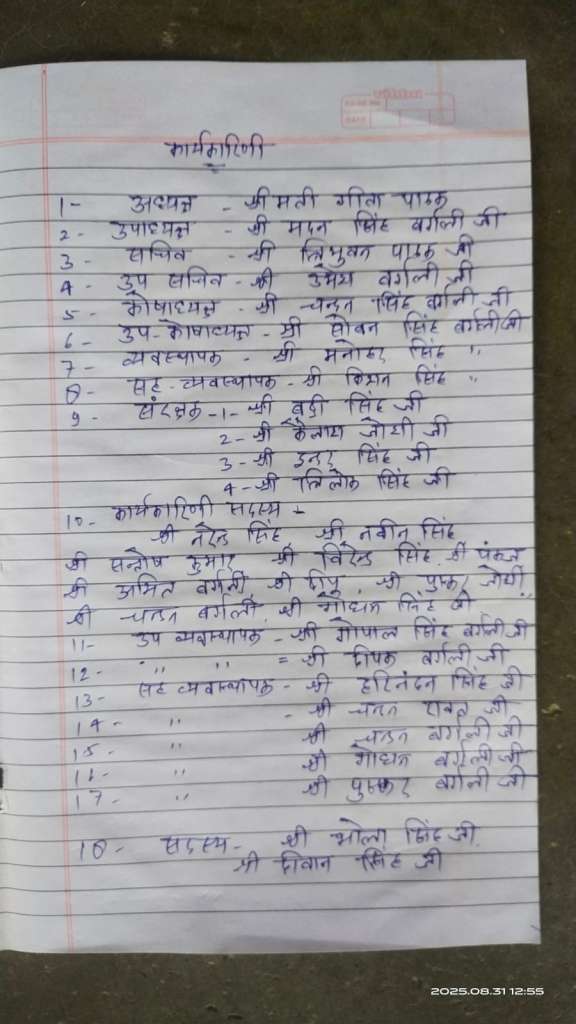 कार्यकारिणी
1- अध्यक्ष - श्रीमती गीता पाठक
2- उपाध्यक्ष - श्री मदन सिंह बर्गली जी
3- सचिव - श्री त्रिभुवन पाठक जी
4- उप सचिव - श्री उमेश बर्गली जी
5- कोषाध्यक्ष - श्री चन्दन सिंह बर्गली जी
6- उप-कोषाध्यक्ष - श्री सोबन सिंह बर्गली जी
7- व्यवस्थापक - श्री मनोहर सिंह "
8- सह-व्यवस्थापक - श्री किशन सिंह "
9- संरक्षक - 1- श्री बद्री सिंह जी
2- श्री कैलाश जोशी जी
3- श्री इन्दर सिंह जी
4- श्री त्रिलोक सिंह जी
10- कार्यकारिणी सदस्य -
श्री नरेन्द्र सिंह, श्री नवीन सिंह
श्री सन्तोष कुमार श्री विरेन्द्र सिंह श्री पंकज
श्री अमित बर्गली, श्री दीपू, श्री पुष्कर जोशी,
श्री चन्दन बर्गली, श्री गोधन सिंह जी
11- उप व्यवस्थापक - श्री गोपाल सिंह बर्गली जी
12- " " = श्री दीपक बर्गली जी
13- सह व्यवस्थापक - श्री हरिनंदन सिंह जी
14- " - श्री चन्दन रावत जी
15- " श्री चन्दन बर्गली जी
16- " श्री गोधन बर्गली जी
17- " श्री पुष्कर बर्गली जी
18- सदस्य - श्री भोला सिंह जी
श्री दीवान सिंह जी
2025.08.31 12:55